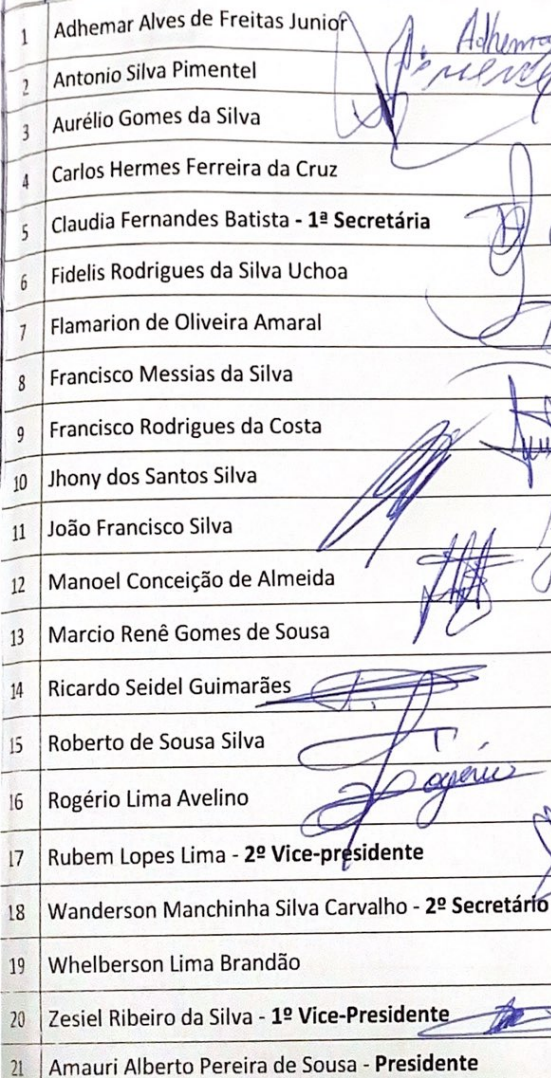 1 Adhemar Alves de Freitas Junior
Adhema
2 Antonio Silva Pimentel
3 Aurélio Gomes da Silva
4 Carlos Hermes Ferreira da Cruz
5 Claudia Fernandes Batista - 1ª Secretária
6 Fidelis Rodrigues da Silva Uchoa
7 Flamarion de Oliveira Amaral
8 Francisco Messias da Silva
9 Francisco Rodrigues da Costa
10 Jhony dos Santos Silva
11 João Francisco Silva
12 Manoel Conceição de Almeida
13 Marcio Renê Gomes de Sousa
14 Ricardo Seidel Guimarães
15 Roberto de Sousa Silva
16 Rogério Lima Avelino Rogério
17 Rubem Lopes Lima - 2º Vice-presidente
18 Wanderson Manchinha Silva Carvalho - 2º Secretário
19 Whelberson Lima Brandão
20 Zesiel Ribeiro da Silva - 1º Vice-Presidente
21 Amauri Alberto Pereira de Sousa - Presidente